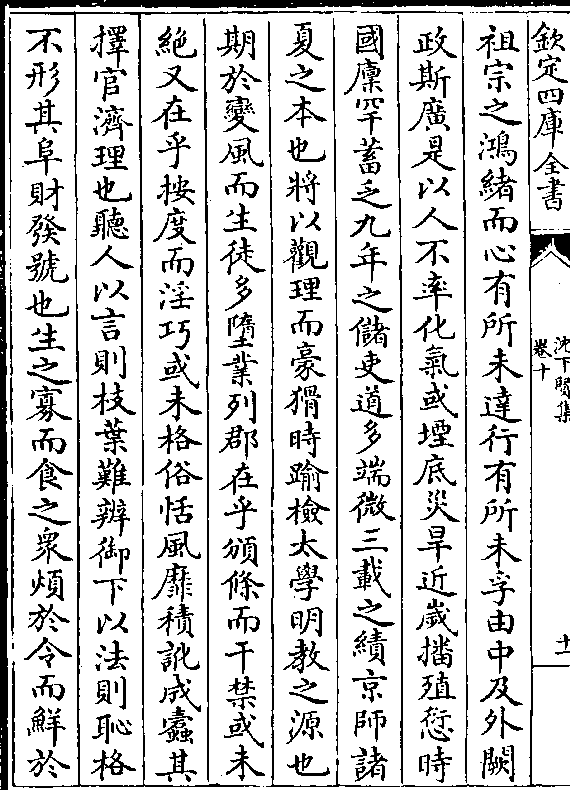 欽定四庫全書
沈下賢集
卷十
十一
祖宗之鴻緒而心有所未達行有所未孚由中及外闕
政斯廣是以人不率化氣或堙底災旱近歲播殖愆時
國廩罕蓄乏九年之儲吏道多端微三載之績京師諸
夏之本也將以觀理而豪猾時踰檢太學明教之源也
期於變風而生徒多墮業列郡在乎頒條而干禁或未
絶又在乎按度而淫巧或未格俗恬風靡積訛成蠹其
擇官濟理也聽人以言則枝葉難辨御下以法則恥格
不形其阜財發號也生之寡而食之衆煩於令而鮮於